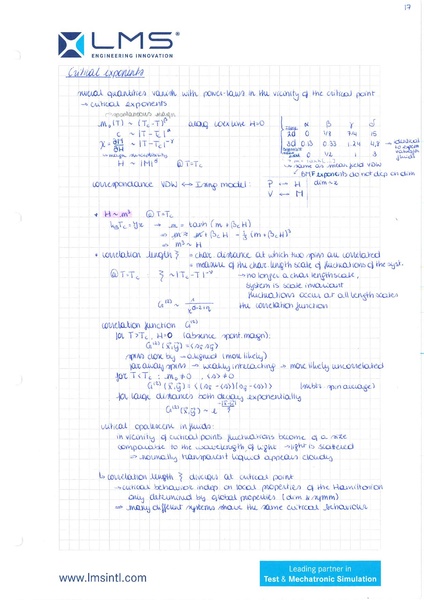 17
LMS
ENGINEERING INNOVATION
Critical exponents
crucial quantities vanish with power-laws in the vicinity of the critical point
→ critical exponents
spontaneous magn
m₀(T) ~ (T_c - T)^β along coexline H=0
C ~ |T - T_c|^-α
χ = ∂M/∂H ~ |T - T_c|^-γ
magn. susceptibility
H ~ |M|^δ @T=T_c
α β γ δ
2D 0 1/8 7/4 15
3D 0.13 0.33 1.24 4.8 → identical to exper.
fluids
0 1/2 1 3
→ same as mean field VDW
! BMF exponents do not dep on dim
correspondance VDW ↔ Ising model: P ↔ H
V ↔ M
• H ~ m³ @T=T_c
k_BT_c = γz → m = tanh (m + β_c H)
→ m ≈ m + β_c H - 1/3 (m + β_c H)³
→ m³ ~ H
• correlation length ξ = char. distance at which two spins are correlated
= measure of the char. length scale of fluctuations of the syst.
@T=T_c : ξ ~ |T_c - T|^-ν → no longer a char. length scale,
system is scale invariant
fluctuations occur at all length scales
the correlation function
correlation function G^(2)
for T>T_c, H=0 (absence spont. magn):
spins close by → aligned (more likely)
far away spins → weakly interacting → more likely uncorrelated
for T<T_c : m₀ ≠ 0 <s> ≠ 0
for large distances both decay exponentially
critical opalescence in fluids:
in vicinity of critical points fluctuations become of a size
comparable to the wavelength of light → light is scattered
→ normally transparent liquid appears cloudy
↳ correlation length ξ diverges at critical point
→ critical behaviour indep. on local properties of the Hamiltonian
only determined by global properties (dim & symm)
→ many different systems share the same critical behaviour
www.lmsintl.com
Leading partner in
Test & Mechatronic Simulation